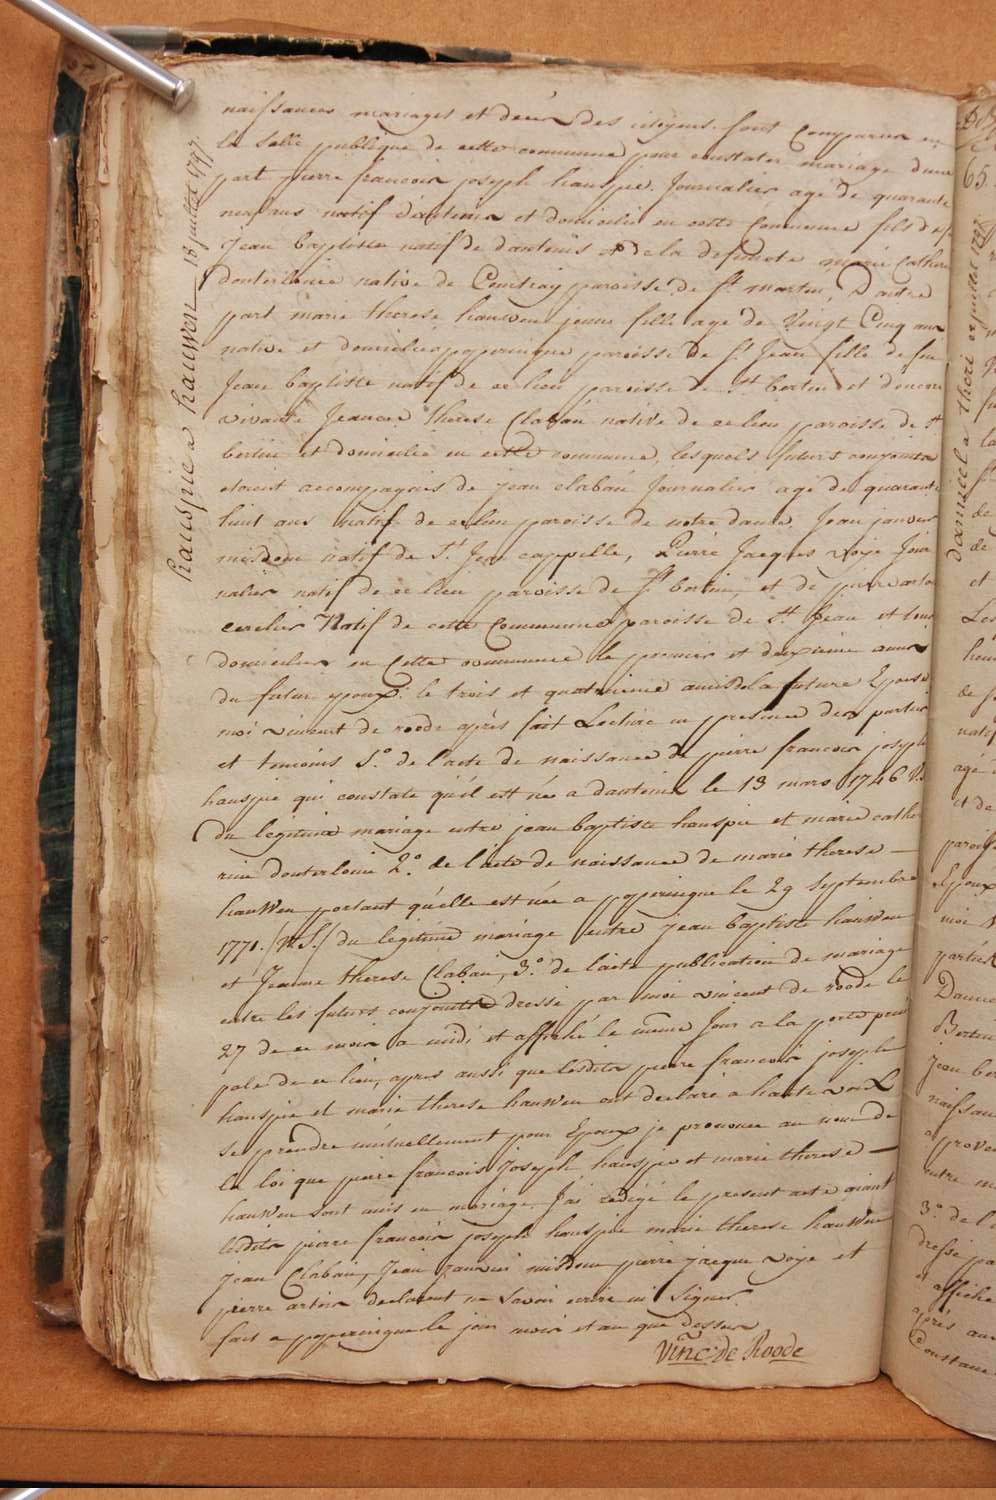 hauspié a hauwen 18 juillet 1797.
naissances mariages et décés des citoyens. sont comparus en
la Salle publique de cette commune pour constater mariage dune
part pierre francois joseph hauspie. Journalier agé de quarante
neuf ans natif d'autrive et domicilié en cette commune fils de
Jean baptiste natif de d'autrive et de la defunte marie Cathe
douterloinie native de Courtray paroisse de St martin, D'autre
part marie therese hauwen jeune fille agé de Vingt Cinq ans
native et domiciliée a poperingue paroisse de St Jean fille de feu
Jean baptiste natif de ce lieu paroisse de St bertin et d'encore
vivante Jeanne therese Clabau native de ce lieu paroisse de St
bertin et domiciliée en cette commune, lesquels futurs conjoints
etaient accompagnés de jean clabau Journalier agé de quarante
huit ans natif de ce lieu paroisse de notre dame, Jean janvier
misdom natif de St Jan cappelle, Pierre Jacques voye Jour
nalier natif de ce lieu paroisse de St bertin, et de pierre artois
cerclier Natif de cette Commune paroisse de St Jean et tous
domiciliés en Cette commune le premier et deuxieme amis
du futur epoux: le trois et quatrieme amis de la future Epouse
moi vincent de roode après fait Lecture en presence des parties
et temoins 1.o de l'acte de naissance de pierre francois joseph
hauspie qui constate qu'il est née a dautrive le 13 mars 1746 V.S
du legitime mariage entre jean baptiste hauspie et marie cathe
rine douterloinie 2.o de l'acte de naissance de marie therese —
hauwen portant qu'elle est née a poperingue le 29 Septembre
1771. (V.S.) du legitime mariage entre jean baptiste hauwen
et Jeanne therese Clabau, 3.o de l'acte publication de mariage
entre les futurs conjoints dressé par moi vincent de roode le
27 de ce mois a midi et affiché le même Jour a la porte prin
pale de ce lieu, apres aussi que lesdits pierre francois joseph
hauspie et marie therese hauwen ont declaré a haute voix
se prendre mutuellement pour Epoux je prononce au nom de
la loi que pierre francois Joseph hauspie et marie therese —
hauwen sont unis en mariage. J'ai redigé le present acte aiant
lesdits pierre francois joseph hauspie marie therese hauwen
Jean Clabau, Jean Janvier misdom pierre jacque voye et
pierre artois declarent ne Savoir ecrire ni Signer.
fait a poperingue le jour mois et an que dessus
Vinc: de Roode
65
damseel a theri